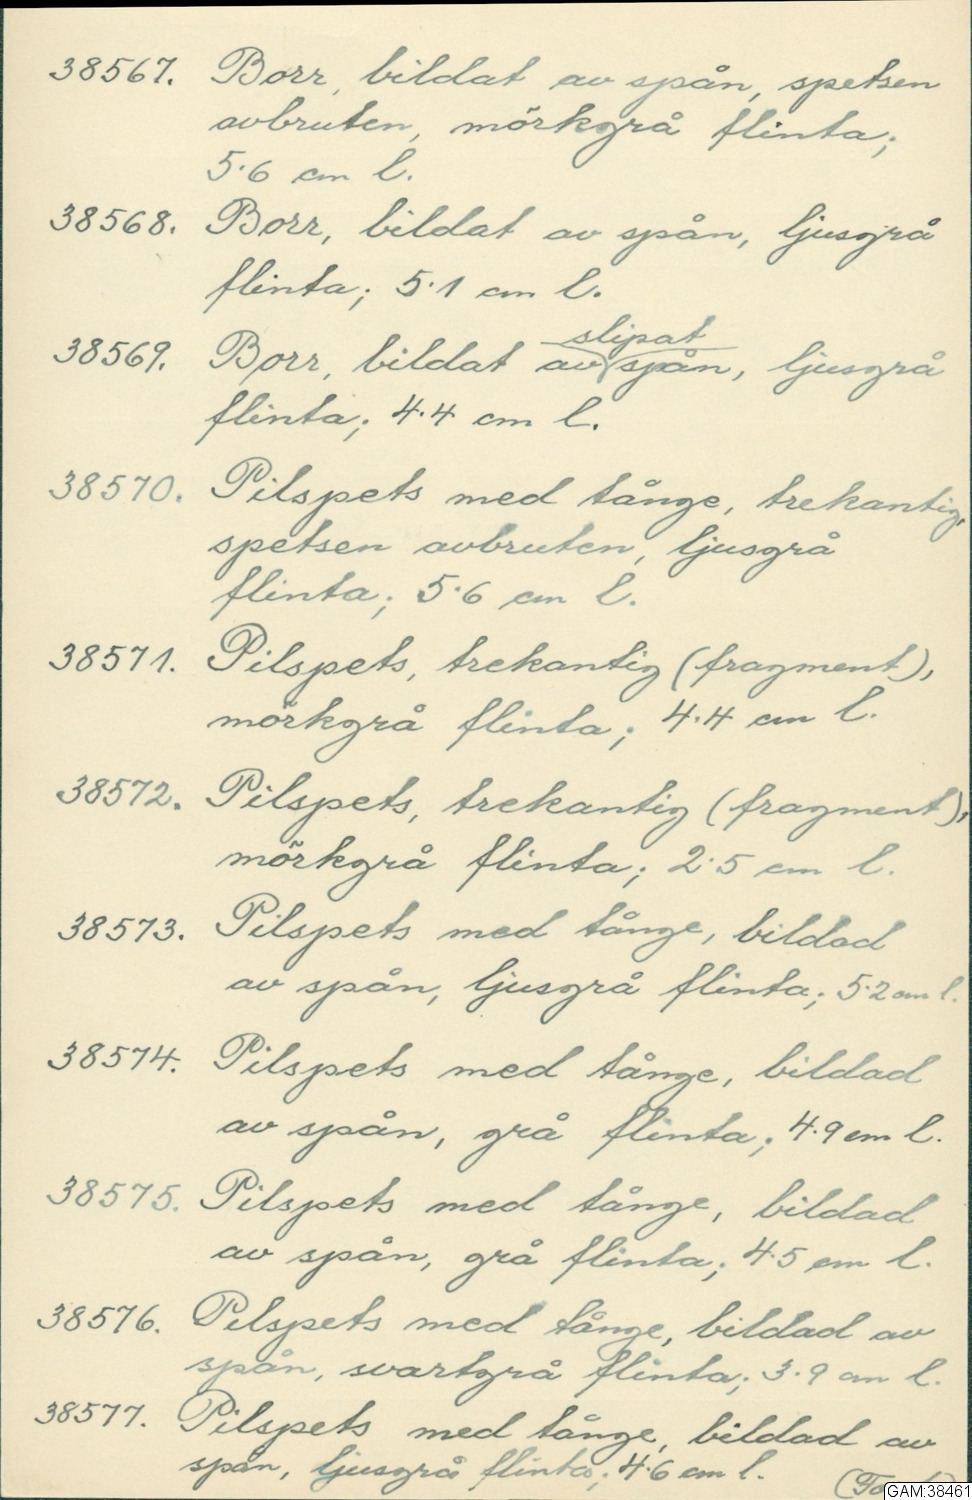 38567. Borr, bildat av spån, spetsen
avbruten, mörkgrå flinta;
5.6 cm l.
38568. Borr, bildat av spån, ljusgrå
flinta; 5.1 cm l.
slipat
38569. Borr, bildat av spån, ljusgrå
flinta; 4.4 cm l.
38570. Pilspets med tånge, trekantig,
spetsen avbruten, ljusgrå
flinta; 5.6 cm l.
38571. Pilspets, trekantig (fragment),
mörkgrå flinta; 4.4 cm l.
38572. Pilspets, trekantig (fragment),
mörkgrå flinta; 2.5 cm l.
38573. Pilspets med tånge, bildad
av spån, ljusgrå flinta; 5.2 cm l.
38574. Pilspets med tånge, bildad
av spån, grå flinta; 4.9 cm l.
38575. Pilspets med tånge, bildad
av spån, grå flinta; 4.5 cm l.
38576. Pilspets med tånge, bildad av
spån, svartgrå flinta; 3.9 cm l.
38577. Pilspets med tånge, bildad av
spån, ljusgrå flinta; 4.6 cm l.
GAM:38461